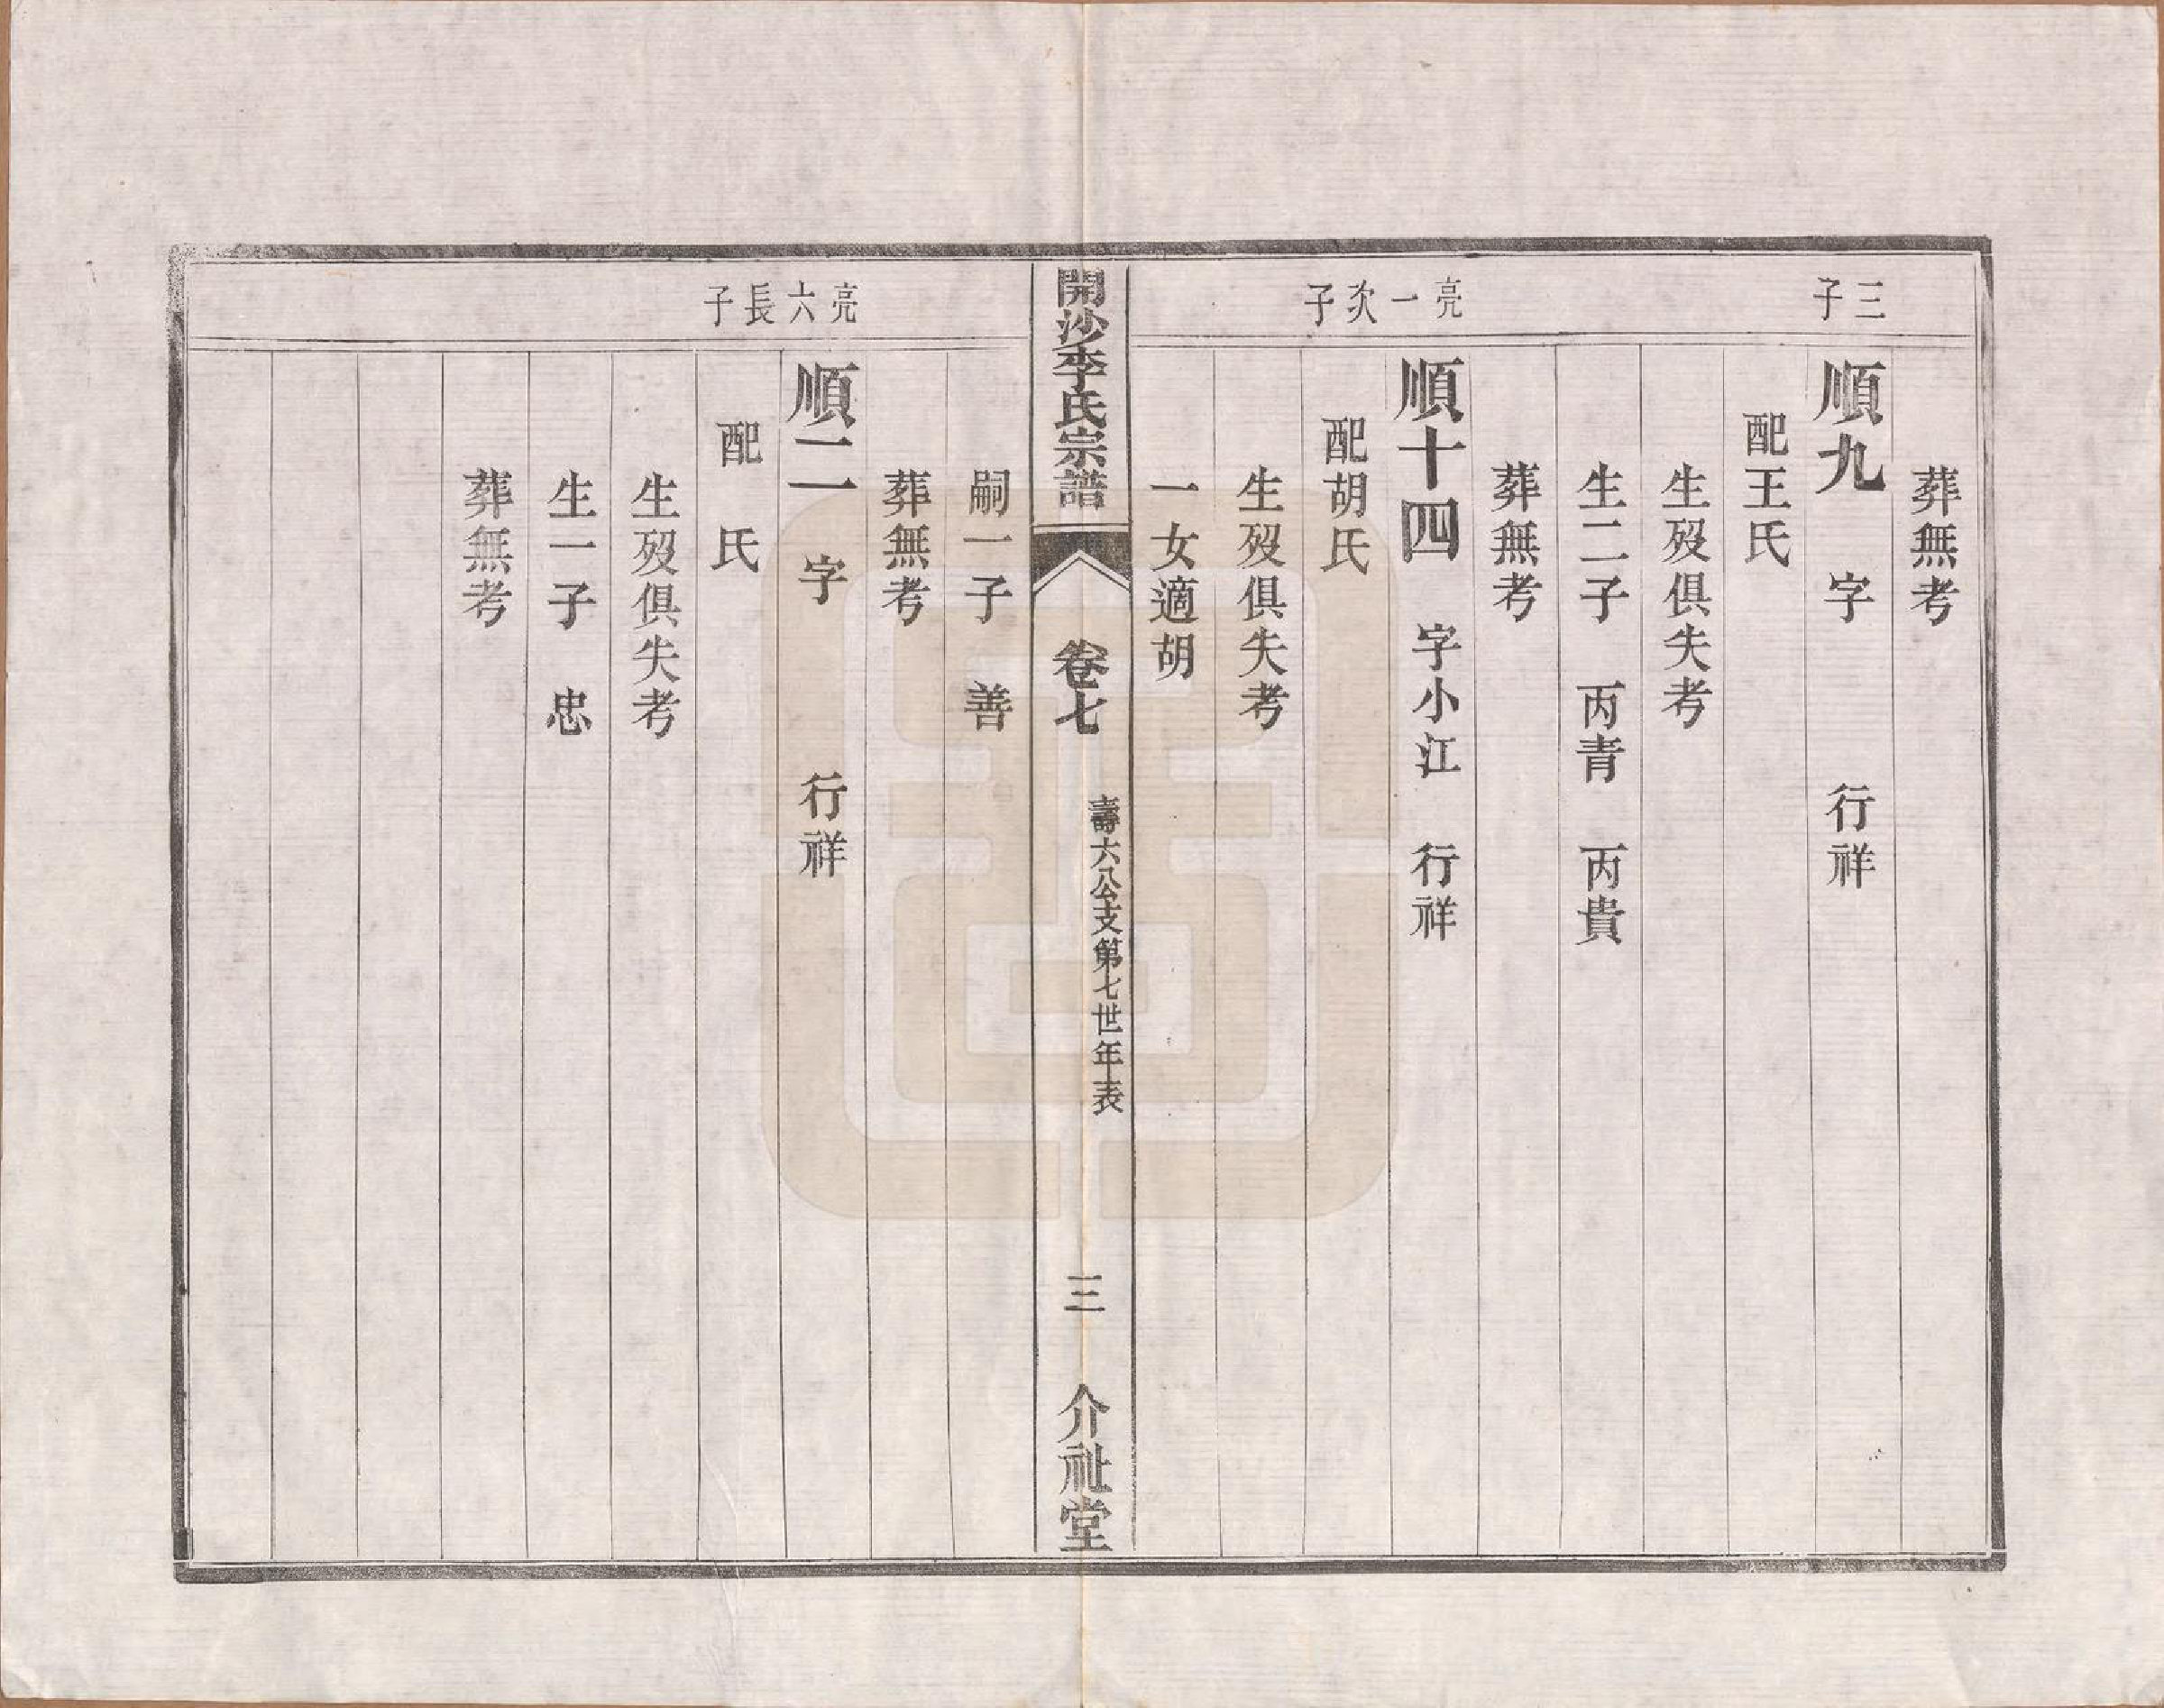 葬無考
三子
順九　字　　　行祥
配王氏
生歿俱失考
生二子　丙青　丙貴
葬無考
亮一次子
順十四　字小江　行祥
配胡氏
生歿俱失考
一女適胡
開沙李氏宗譜　卷七　壽六八公支第七世年表　三　介祉堂
嗣一子　善
葬無考
亮六長子
順二　字　　　行祥
配　氏
生歿俱失考
生一子　忠
葬無考